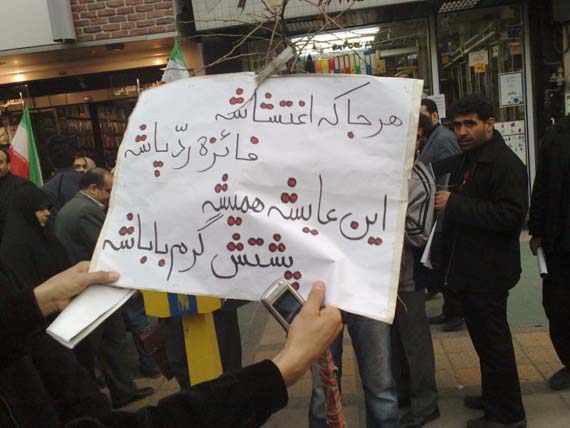 هر جا که اغتشاشه
فائزه ردّ پاشه
این عایشه همیشه
پشتش گرم باباشه